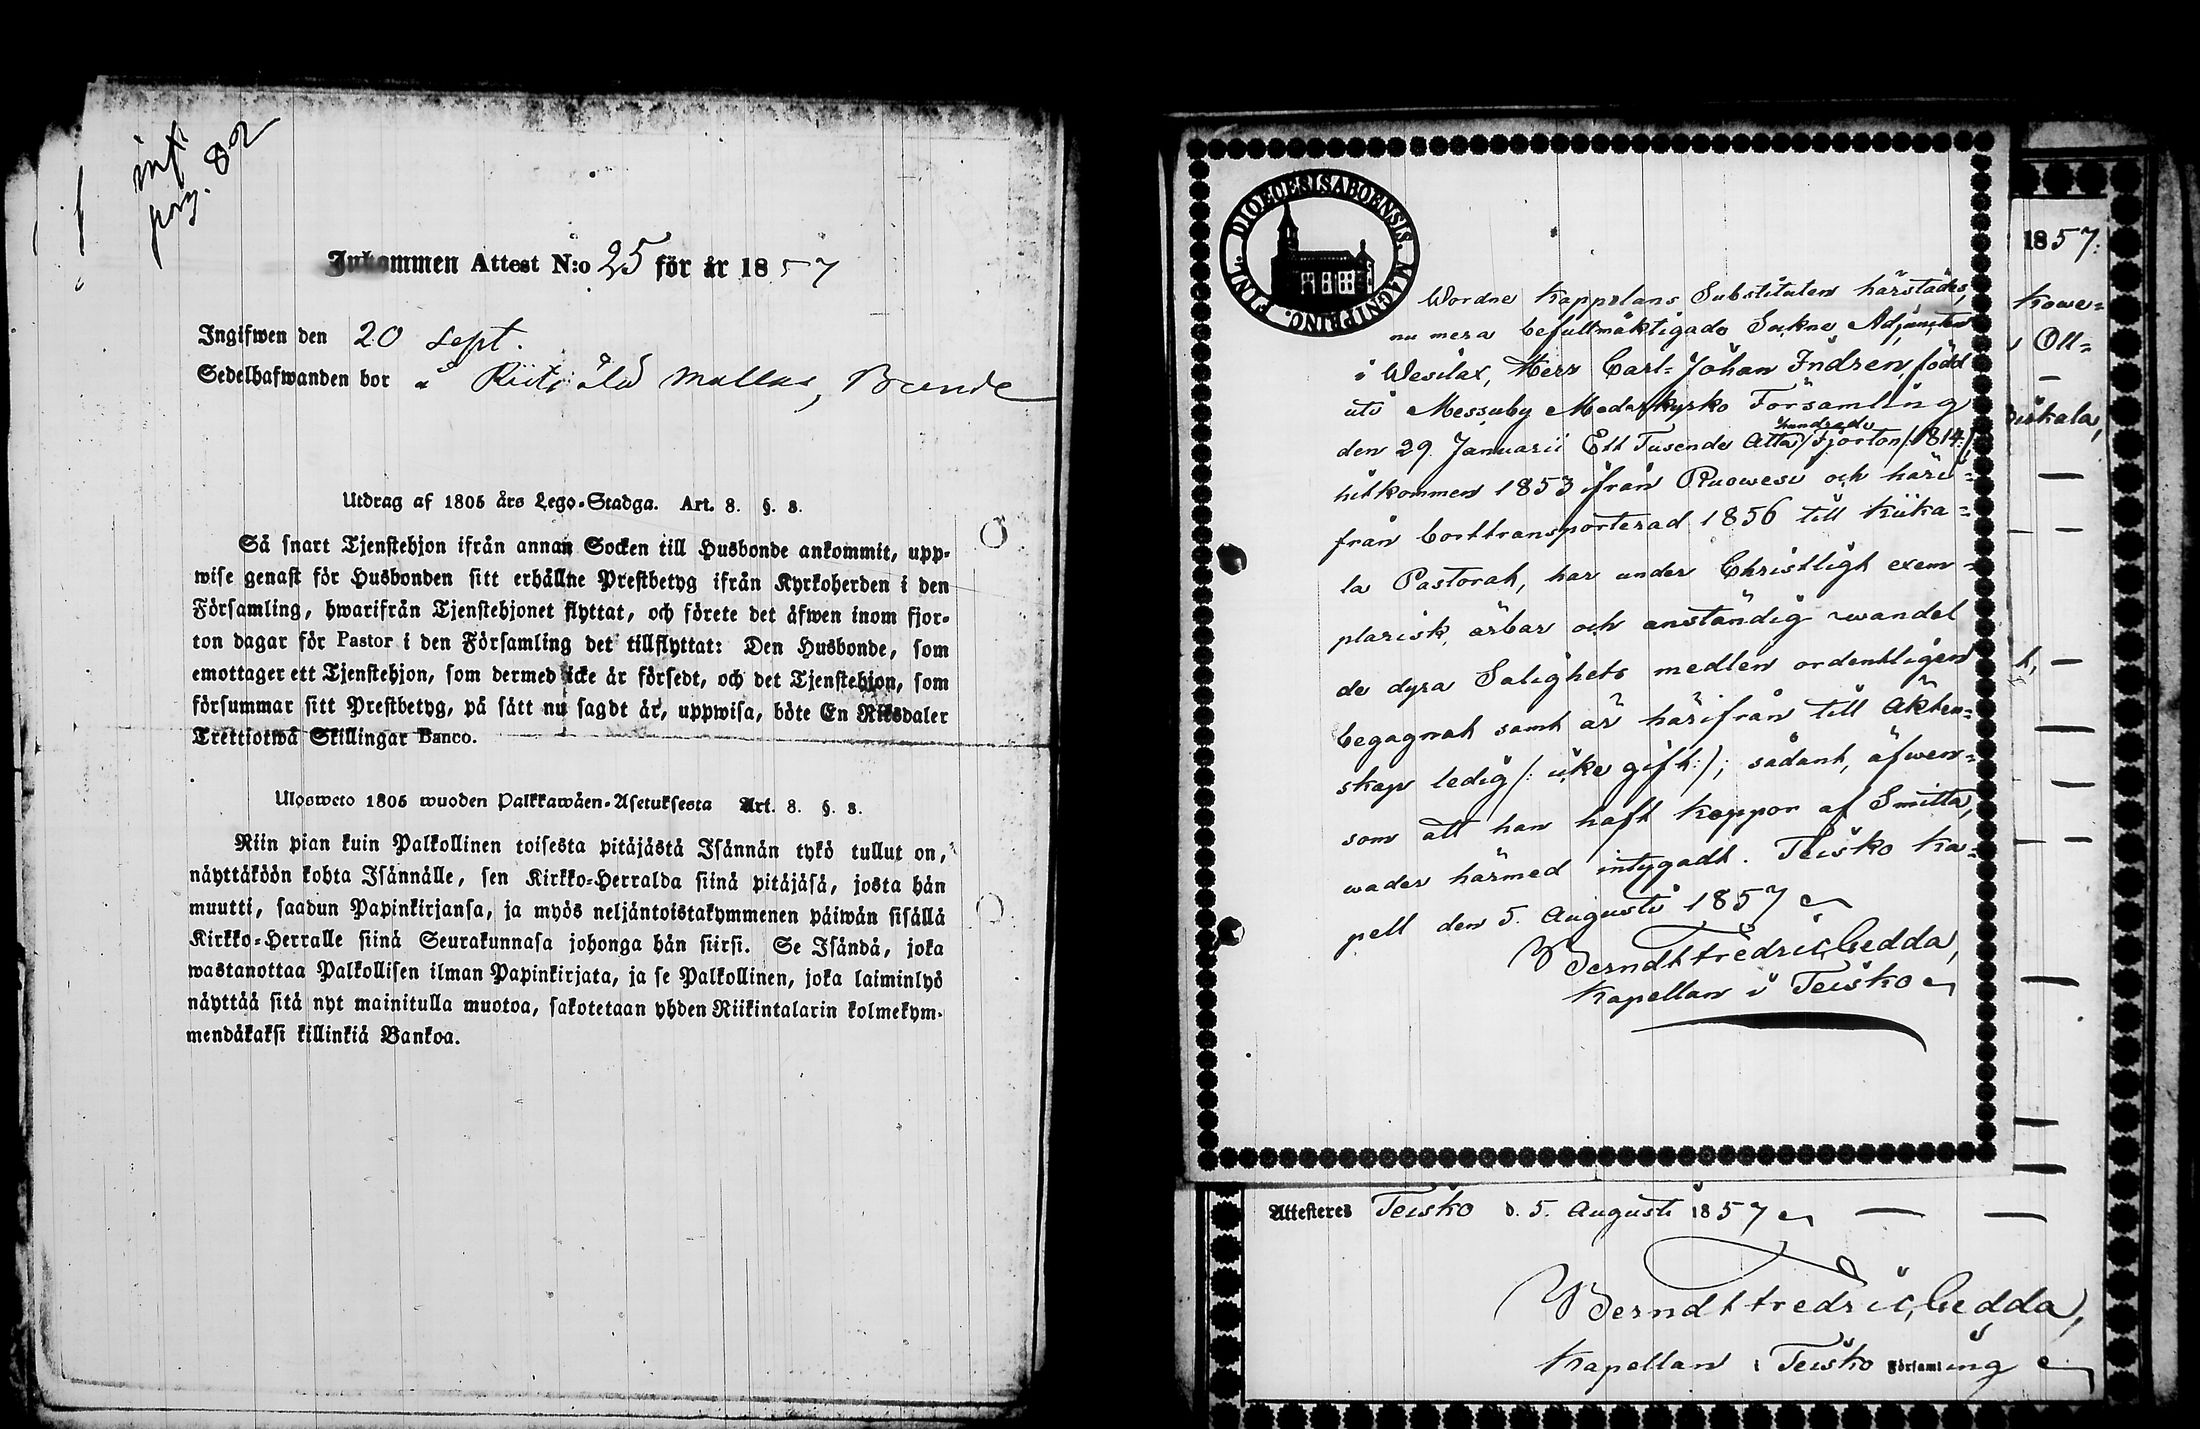 inf.
pag. 82
Inkommen Attest N:o 25 för år 1857
Ingifwen den 20 Sept.
Sedelhafwanden bor å
Utdrag af 1805 års Lego-Stadga. Art. 8. §. 8.
Så snart Tjenstehjon ifrån annan Socken till Husbonde ankommit, upp-
wise genast för Husbonden sitt erhållne Prestbetyg ifrån Kyrkoherden i den
Församling, hwarifrån Tjenstehjonet flyttat, och förete det äfwen inom fjor-
ton dagar för Pastor i den Församling det tillflyttat: Den Husbonde, som
emottager ett Tjenstehjon, som dermed icke är försedt, och det Tjenstehjon, som
försummar sitt Prestbetyg, på sätt nu sagdt är, uppwisa, böte En Riksdaler
Trettiotwå Skillingar Banco.
Ulosweto 1805 wuoden Palkkawäen-Asetuksesta Art. 8. §. 8.
Niin pian kuin Palkollinen toisesta pitäjästä Isännän tykö tullut on,
näyttäköön kohta Isännälle, sen Kirkko-Herralda siinä pitäjäsä, josta hän
muutti, saadun Papinkirjansa, ja myös neljäntoistakymmenen päiwän sisällä
Kirkko-Herralle siinä Seurakunnasa johonga hän siirsi. Se Isändä, joka
wastanottaa Palkollisen ilman Papinkirjata, ja se Palkollinen, joka laiminlyö
näyttää sitä nyt mainitulla muotoa, sakotetaan yhden Riikintalarin kolmekym-
mendäkaksi killinkiä Bankoa.
DIOECESIS ABOENSIS. MAGNI PRINC. FINL.
Wordne Kappelans Substituten härstädes,
nu mera befullmäktigade Sockne Adjuncten
i Wesilax, Herr Carl-Johan Indren, född
uti Messuby Moderkyrko Församling
den 29 Januarii Ett Tusende Åtta hundrade Fjorton /:1814:/
hitkommen 1853 ifrån Ruowesi och häri-
från borttransporterad 1856 till Kiika-
la Pastorat, har under Christligt exem-
plarisk, ärbar och anständig wandel
de dyra Salighets medlen ordentligen
begagnat samt är härifrån till Äkten-
skap ledig /: icke gift:/; sådant, äfwen-
som att han haft Koppor af Smitta,
warder härmed intygadt. Teisko Ka-
pell den 5. Augusti 1857
Berndt Fredric Gedda,
Kapellan i Teisko
1857.
Kowe-
Ott-
iskala,
t,
Attesteres Teisko d. 5. Augusti 1857
Berndt Fredric Gedda,
Kapellan i Teisko Församling